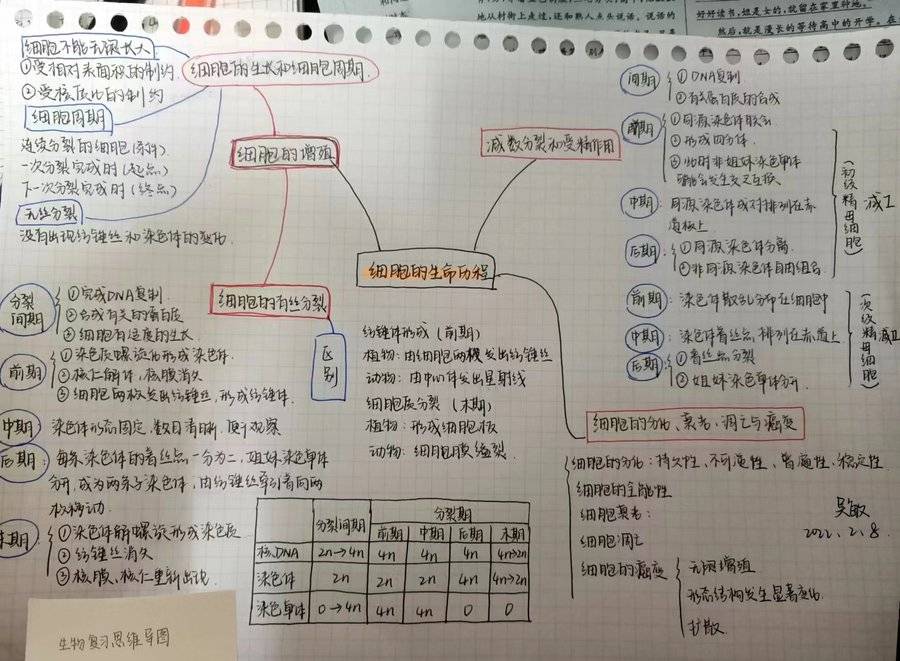 地从村街上走过,还和熟人点头说话。说话的
好好读书,妞是女的,就留在家里种地。
然后,就是漫长的等待高中的开学。在
细胞的生长和细胞周期
细胞不能无限长大
①受相对表面积的制约
②受核质比的制约
细胞周期
连续分裂的细胞(条件)
一次分裂完成时(起点)
下一次分裂完成时(终点)
无丝分裂
没有出现纺锤丝和染色体的变化.
细胞的增殖
减数分裂和受精作用
细胞的生命历程
细胞的有丝分裂
分裂间期
①完成DNA复制.
②合成有关的蛋白质
③细胞有适度的生长
前期
①染色质螺旋化形成染色体.
②核仁解体,核膜消失
③细胞两极发出纺锤丝,形成纺锤体.
中期
染色体形态固定,数目清晰,便于观察
后期:
每条染色体的着丝点一分为二,姐妹染色单体
分开,成为两条子染色体,由纺锤丝牵引着向两
极移动.
末期:
①染色体解螺旋形成染色质
②纺锤丝消失
③核膜、核仁重新出现
区别
纺锤体形成(前期)
植物:由细胞两极发出纺锤丝
动物:由中心体发出星射线
细胞质分裂(末期)
植物:形成细胞板
动物:细胞膜缢裂.
分裂间期 分裂期
前期 中期 后期 末期
核DNA 2n→4n 4n 4n 4n 4n→2n
染色体 2n 2n 2n 4n 4n→2n
染色单体 0→4n 4n 4n 0 0
间期
①DNA复制
②有关蛋白质的合成
前期
①同源染色体联会
②形成四分体.
③此时非姐妹染色单体
可能会发生交叉互换
中期
同源染色体成对排列在赤
道板上
后期
①同源染色体分离.
②非同源染色体自由组合.
(初级精母细胞)
减I
前期:
染色体散乱分布在细胞中
中期:
染色体着丝点排列在赤道上
后期:
①着丝点分裂
②姐妹染色单体分开.
(次级精母细胞)
减II
细胞的分化、衰老、凋亡与癌变
细胞的分化:持久性,不可逆性、普遍性、稳定性.
细胞的全能性
细胞衰老:
细胞凋亡
细胞的癌变
无限增殖
形态结构发生显著变化.
扩散.
吴敏
2022.2.8
生物复习思维导图